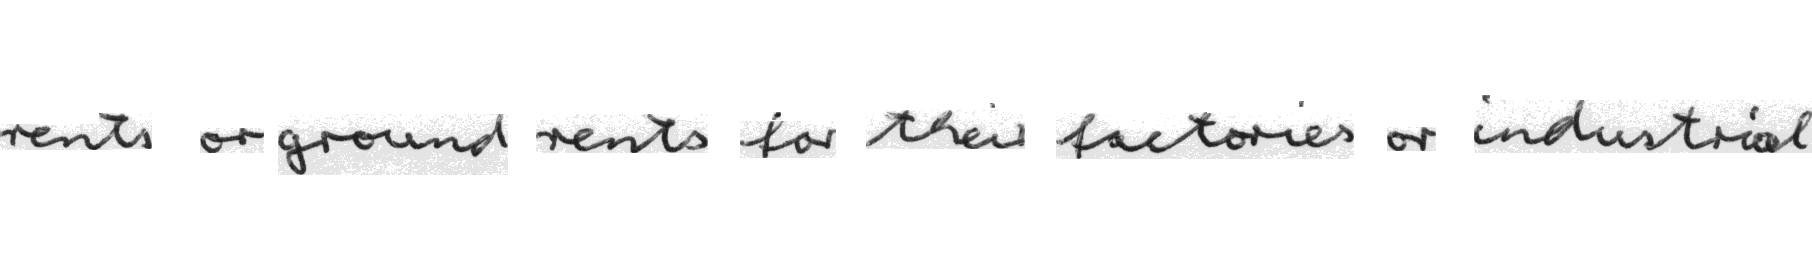 rents or ground rents for their factories or industrial